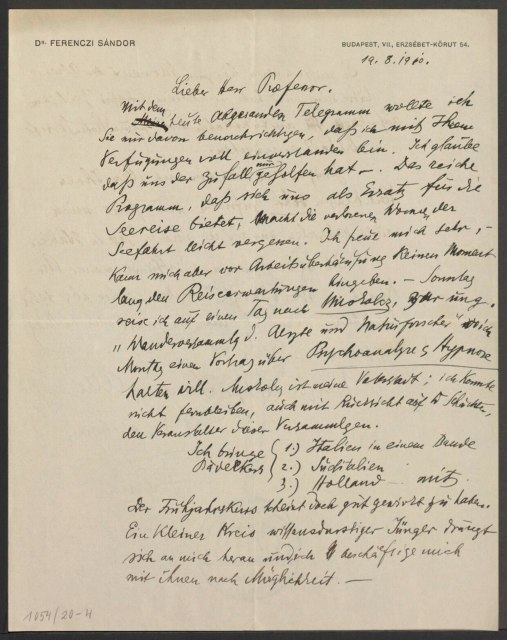 Dr. FERENCZI SÁNDOR
BUDAPEST, VII., ERZSÉBET-KÖRUT 54.
19. 8. 1910.
Lieber Herr Professor.
Mit dem heute abgesandten Telegramm wollte ich
Sie nur davon benachrichtigen, daß ich mit Ihren
Verfügungen voll einverstanden bin. Ich glaube
daß uns der Zufall nur geholfen hat. Das reiche
Programm, daß sich uns als Ersatz für die
Seereise bietet, macht die verlorenen Wonnen der
Seefahrt leicht vergessen. Ich freue mich sehr, –
kann mich aber vor Arbeitsüberhäufung keinen Moment
lang den Reiseerwartungen hingeben. – Sonntag
reise ich auf einen Tag nach Miskolcz, zur ung.
„Wanderversammlg d. Aerzte und Naturforscher" wo ich
Montag einen Vortrag über Psychoanalyse & Hypnose
halten will. Miskolcz ist meine Vaterstadt; ich konnte
nicht fernbleiben, auch mit Rücksicht auf Dr Schächter,
den Veranstalter dieser Versammlgen.
Ich bringe 1.) Italien in einem Bande
Bädekers 2.) Süditalien
3.) Holland mit.
Der Frühjahrskurs scheint doch gut gewirkt zu haben.
Ein kleiner Kreis wissensdurstiger Jünger drängt
sich an mich heran und ich beschäftige mich
mit ihnen nach Möglichkeit. —
1054/20-4